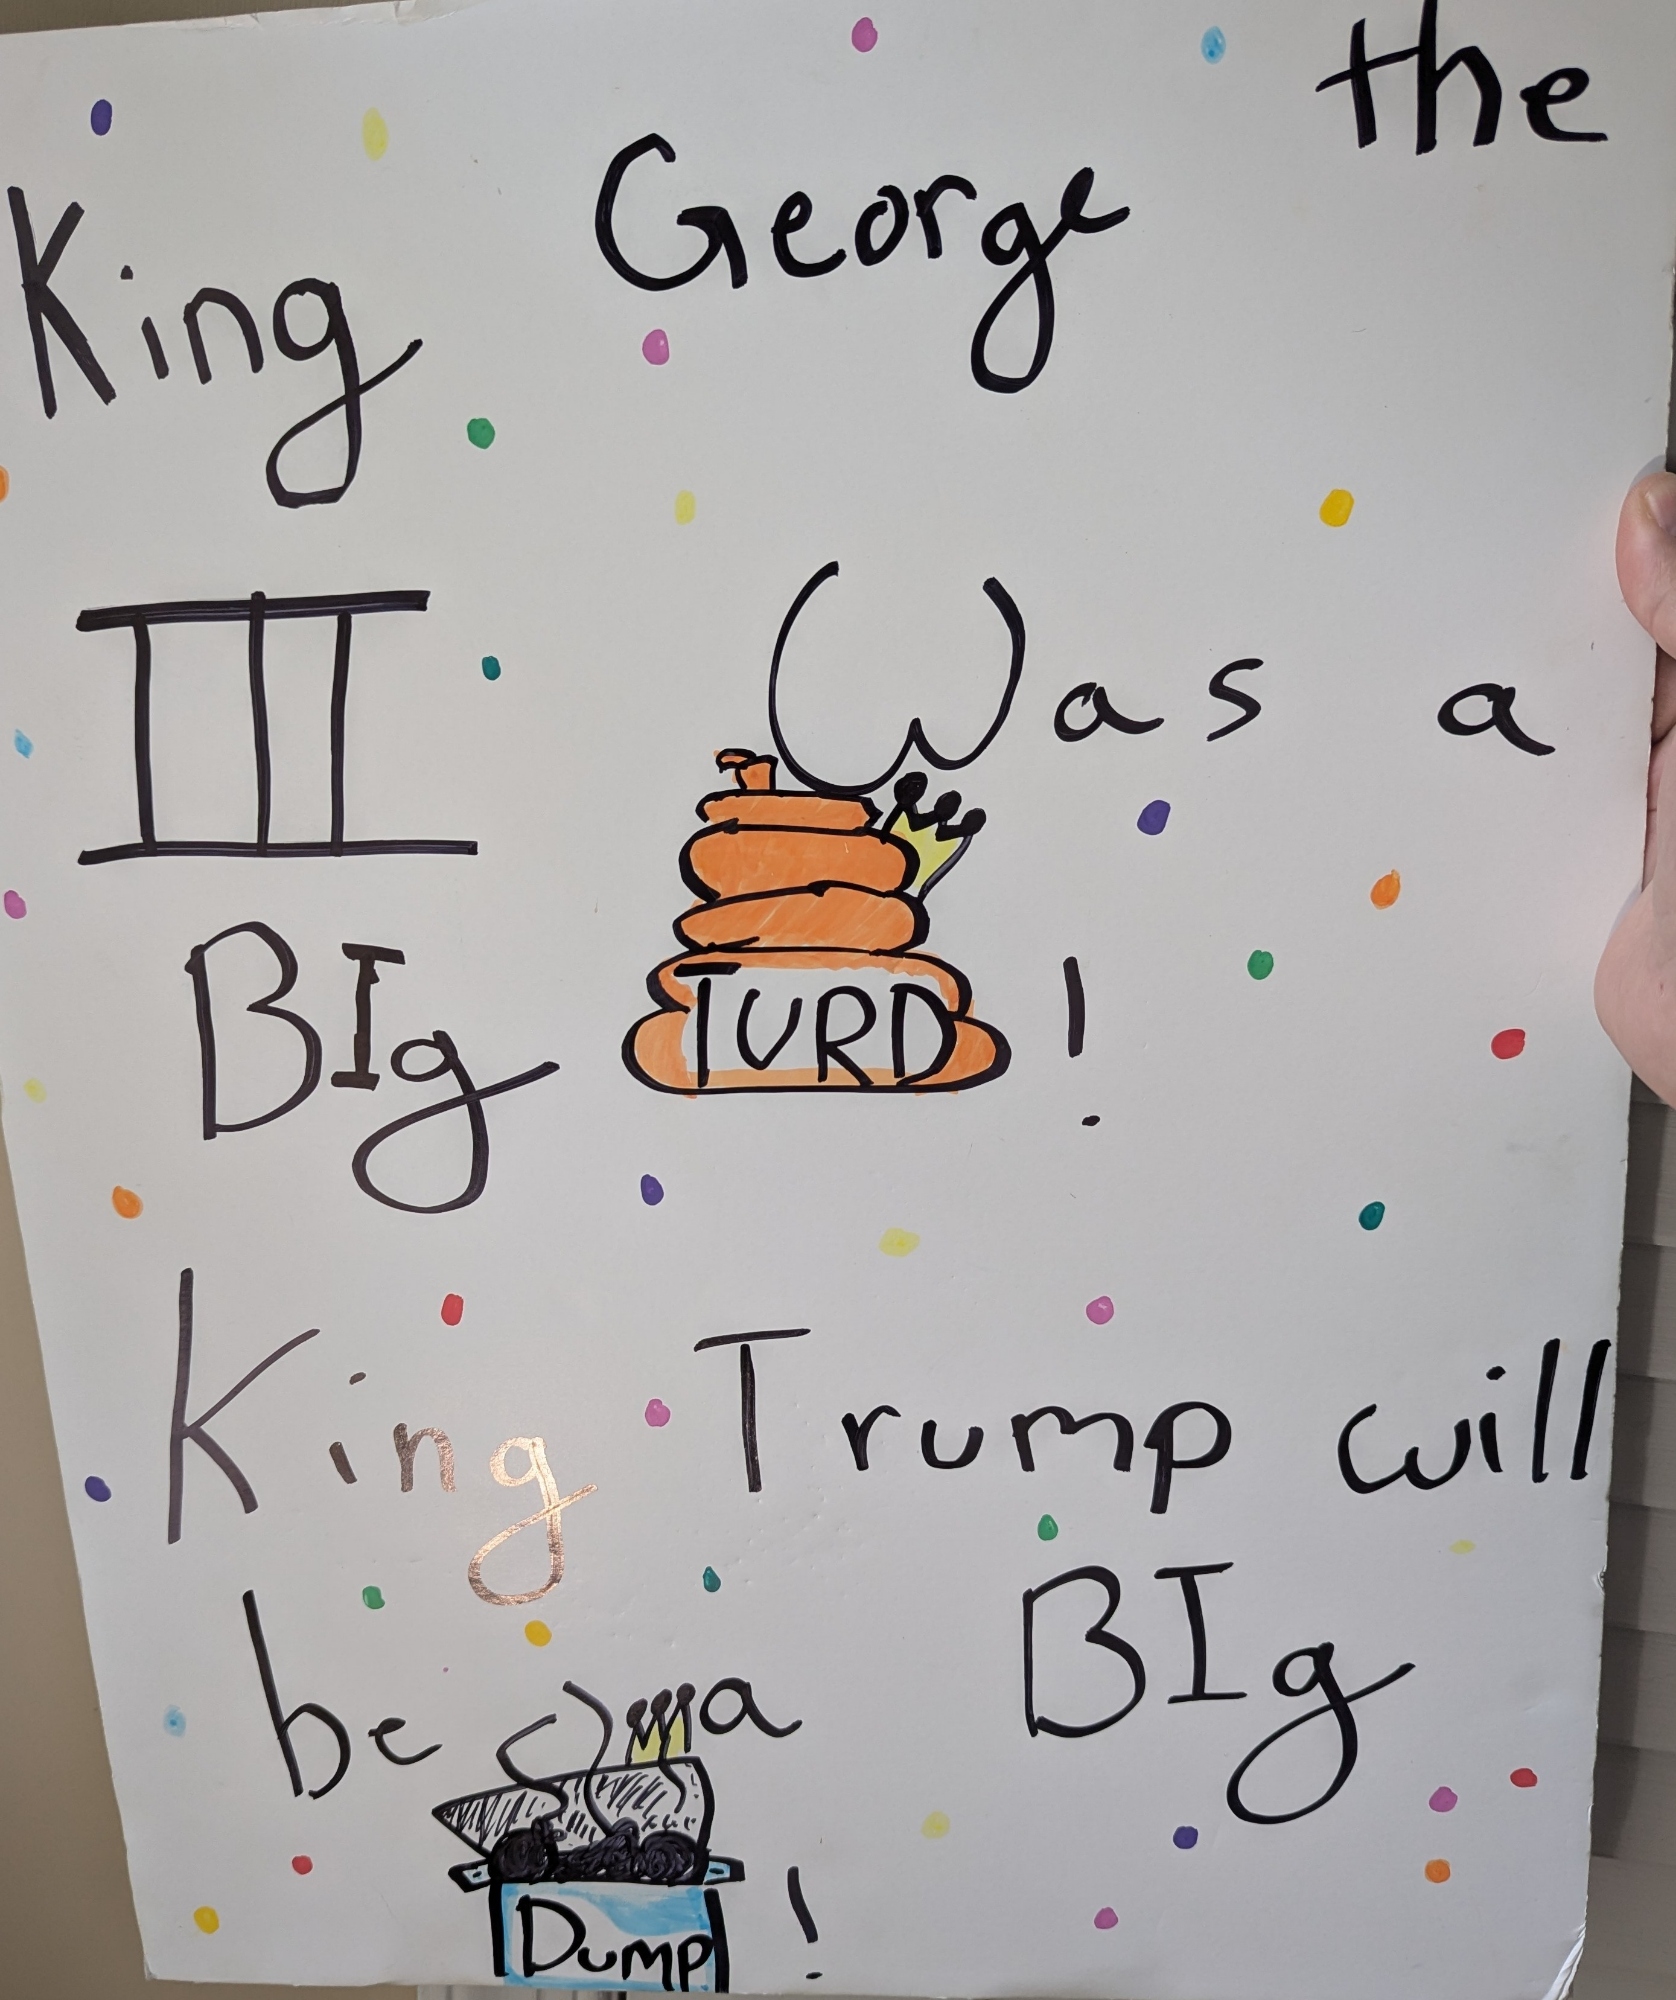 King George the
III Was a
BIg TURD!
King Trump will
be a BIg
Dump!